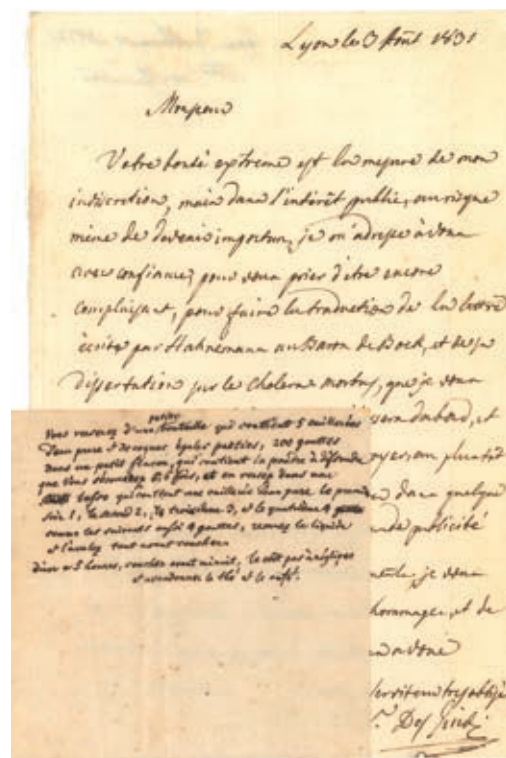 Lyon le 3 Août 1831
Monsieur
Votre bonté extreme est la mesure de mon
indiscretion, mais dans l'intérêt public, au risque
même de devenir importun, je m'adresse à vous
avec confiance, pour vous prier d'être encore
complaisant, pour faire la traduction de la lettre
écrite par Hahnemann au Baron de Bock, et de sa
dissertation sur le Cholera morbus, que je vous
d'abord, et
ou plustot
dans quelque
publicité
je vous
hommages, et de
serviteur tres obligé
Des Guidi
petite
Vous verserez d'une bouteille qui contient 5 cuillerées
d'eau pure et de cognac égales parties, 200 gouttes
dans un petit flacon, qui contient la poudre à dissoudre
que vous secouerez fois, et en versez dans une
tasse qui contient une cuillerée d'eau pure le premier
soir 1, le second 2, le troisième 3, et le quatrième 4
comme les suivants aussi 4 gouttes, remuez le liquide
et l'avalez tout avant coucher
diner à 5 heures, coucher avant minuit,
et abandonnez le thé et le café.